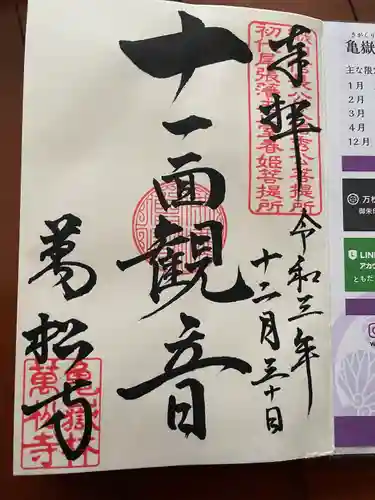 奉拝
令和三年
十二月三十日
十一面観音
萬松寺
初代尾張藩主正室春姫菩提所
亀嶽林
萬松寺
亀嶽
主な限定
1月
2月
3月
4月
12月
万松
御朱
LINE
アカウ
ともだ